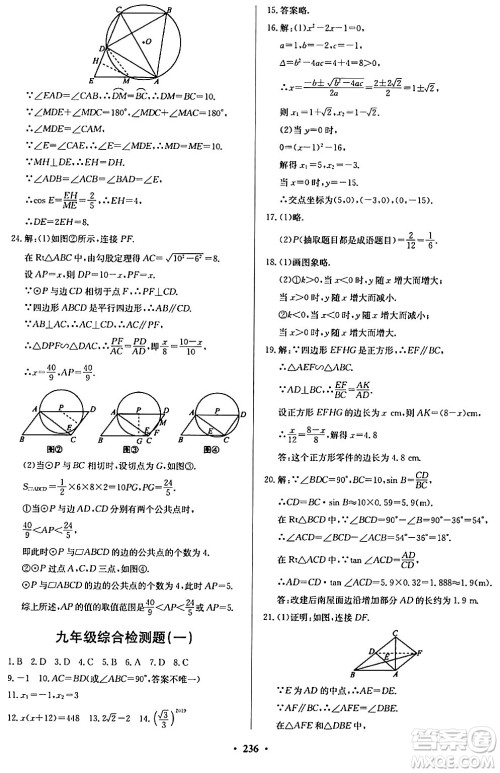 C
B
O
D
H
E
M
A
∵∠EAD=∠CAB，∴DM=BC，∴DM=BC=10.
∵∠MDE+∠MDC=180°，∠MDC+∠MAC=180°，
∴∠MDE=∠MAC，∴∠E=∠MDE，∴EM=DM=10.
∵MH⊥DE，∴EH=DH.
∴cos E=EH/ME=2/5，∴EH=4，∴DE=8.
24.解：(1)如图②所示，连接 PF.
在 Rt△ABC 中，由勾股定理得 AC=√(10²−6²)=8.
设 AP=x，则 DP=10−x，PF=x.
∵⊙P 与边 CD 相切于点 F，∴PF⊥CD.
∵四边形 ABCD 是平行四边形，∴AB∥CD.
∵AB⊥AC，∴AC⊥CD，∴AC∥PF.
∴△DPF∽△DAC，∴PF/AC=PD/AD，∴x/8=(10−x)/10.
∴x=40/9，∴AP=40/9.
A P D
B E C
图②
A P D
B G C
图③
A P D
B E C
图④
(2)当⊙P 与 BC 相切时，设切点为 G，如图③.
S▱ABCD=1/2×6×8×2=10PG，PG=24/5.
①当⊙P 与边 AD，CD 分别有两个公共点时，
40/9<AP<24/5，
即此时⊙P 与▱ABCD 的边的公共点的个数为 4.
②⊙P 过点 A，C，D 三点，如图④，
⊙P 与▱ABCD 的边的公共点的个数为 4，此时 AP=5.
综上所述，AP 的值的取值范围是 40/9<AP<24/5 或 AP=5.
九年级综合检测题(一)
1.B 2.D 3.D 4.B 5.D 6.B 7.D 8.C
9.−1 10.AC=BD(或∠ABC=90°，答案不唯一)
11.x₁=−1，x₂=3
12.x(x+12)=448 13.2√2 14.(√3/3)²⁰¹⁹
15.答案略.
16.解：(1)x²−2x−1=0，
a=1，b=−2，c=−1，
Δ=b²−4ac=4+4=8>0，
∴x=(−b±√(b²−4ac))/2a=(2±2√2)/2，
则 x₁=1+√2，x₂=1−√2.
(2)当 y=0 时，
(x−1)²−16=0，
解得 x₁=5，x₂=−3.
∴交点坐标为(5，0)，(−3，0).
17.(1)略.
(2)P(抽取题目都是成语题目)=2/12=1/6.
18.(1)画图象略.
(2)①k>0，当 x<0 时，y 随 x 增大而增大；
当 x>0 时，y 随 x 增大而减小.
②k<0，当 x<0 时，y 随 x 增大而减小；
当 x>0 时，y 随 x 增大而增大.
19.解：∵四边形 EFHG 是正方形，∴EF∥BC，
∴△AEF∽△ABC，∴EF/BC=AK/AD.
设正方形 EFHG 的边长为 x cm，则 AK=(8−x)cm，
∴x/12=(8−x)/8，解得 x=4.8.
答：这个正方形零件的边长为 4.8 cm.
20.解：∵∠BDC=90°，BC=10，sin B=CD/BC，
∴CD=BC·sin B≈10×0.59=5.9(m).
∵在 Rt△BCD 中，∠BCD=90°−∠B=90°−36°=54°，
∴∠ACD=∠BCD−∠ACB=54°−36°=18°.
∴在 Rt△ACD 中，tan∠ACD=AD/CD.
∴AD=CD·tan∠ACD≈5.9×0.32=1.888≈1.9(m).
答：改建后南屋面边沿增加部分 AD 的长约为 1.9 m.
21.(1)证明：如图，连接 DF.
C
D
F
E
B
A
∵E 为 AB 的中点，∴AE=BE.
∵∠AEF=∠DBE，∴△AFE≌△DBE，
· 236 ·